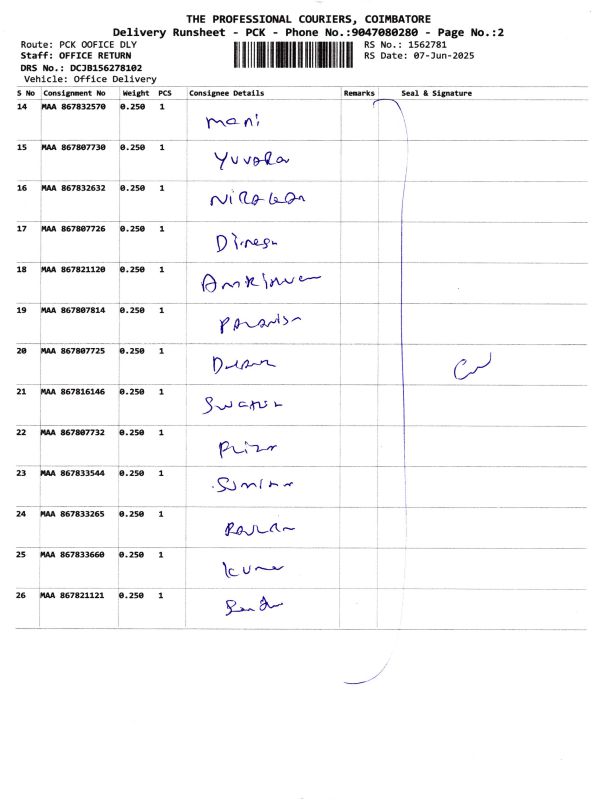 THE PROFESSIONAL COURIERS, COIMBATORE
Delivery Runsheet - PCK - Phone No.:9047080280 - Page No.:2
Route: PCK OOFICE DLY RS No.: 1562781
Staff: OFFICE RETURN RS Date: 07-Jun-2025
DRS No.: DCJB156278102
Vehicle: Office Delivery
S No Consignment No Weight PCS Consignee Details Remarks Seal & Signature
14 MAA 867832570 0.250 1 mani
15 MAA 867807730 0.250 1
16 MAA 867832632 0.250 1
17 MAA 867807726 0.250 1 Dinesh
18 MAA 867821120 0.250 1
19 MAA 867807814 0.250 1
20 MAA 867807725 0.250 1
21 MAA 867816146 0.250 1
22 MAA 867807732 0.250 1
23 MAA 867833544 0.250 1
24 MAA 867833265 0.250 1
25 MAA 867833660 0.250 1
26 MAA 867821121 0.250 1